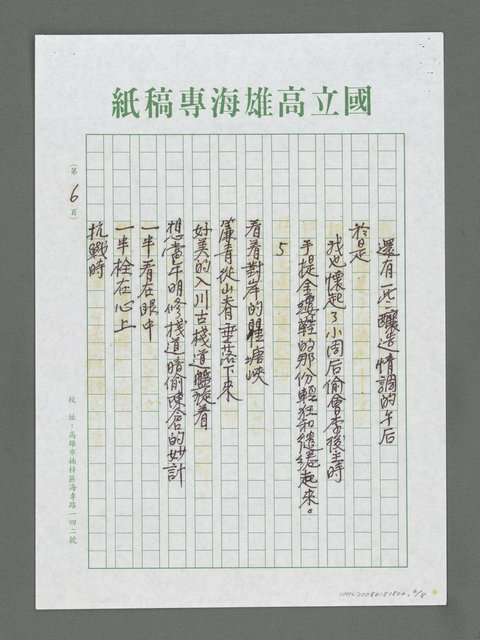 國立高雄海專稿紙
還有一些釀造情調的午后
於是
我也懷起了小周后偷會李後主時
手提金縷鞋的那份輕狂和繾綣起來。
5
看著對岸的瞿塘峽
簾青從山脊垂落下來
好美的入川古棧道盤旋着
想當年明修棧道暗偷陳倉的妙計
一半看在眼中
一半栓在心上
抗戰時
(第 6 頁)
校 址：高雄市楠梓區海專路一四二號
NMTL20080181802, 6/8